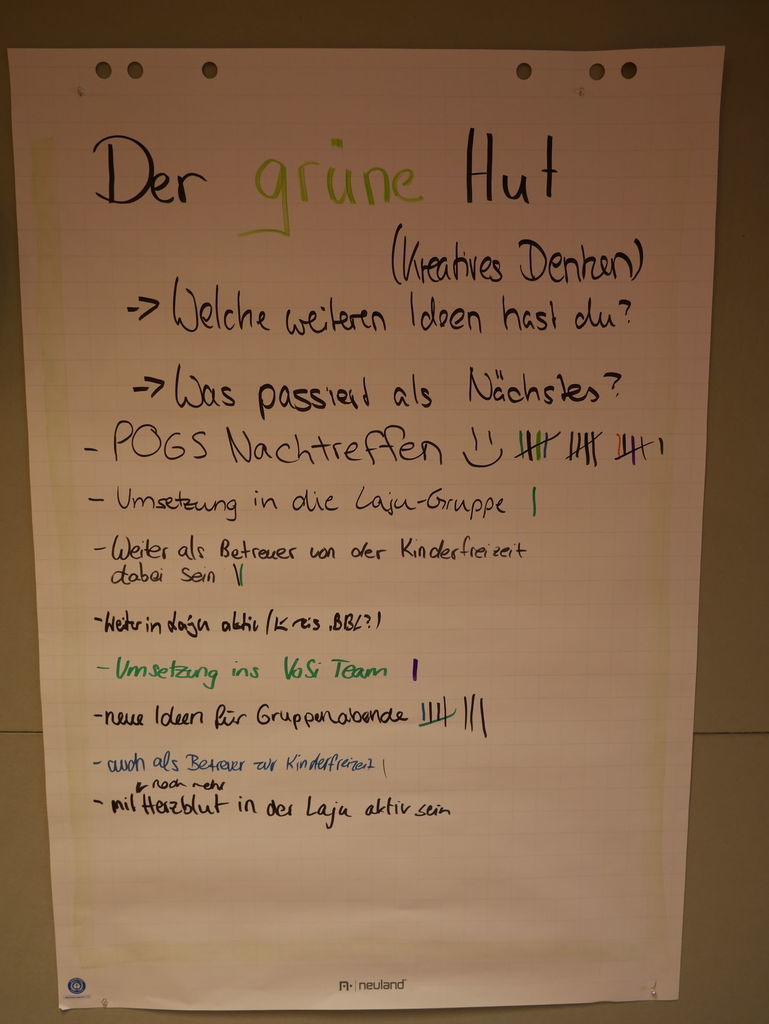 Der grüne Hut
(Kreatives Denken)
-> Welche weiteren Ideen hast du?
-> Was passiert als Nächstes?
- POGS Nachtreffen
- Umsetzung in die Laju-Gruppe
- Weiter als Betreuer von der Kinderfreizeit
dabei sein
- Weiter in Laju aktiv (Kreis, BBL?)
- Umsetzung ins VoSi Team
- neue Ideen für Gruppenabende
- auch als Betreuer zur Kinderfreizeit
noch mehr
- mit Herzblut in der Laju aktiv sein
neuland